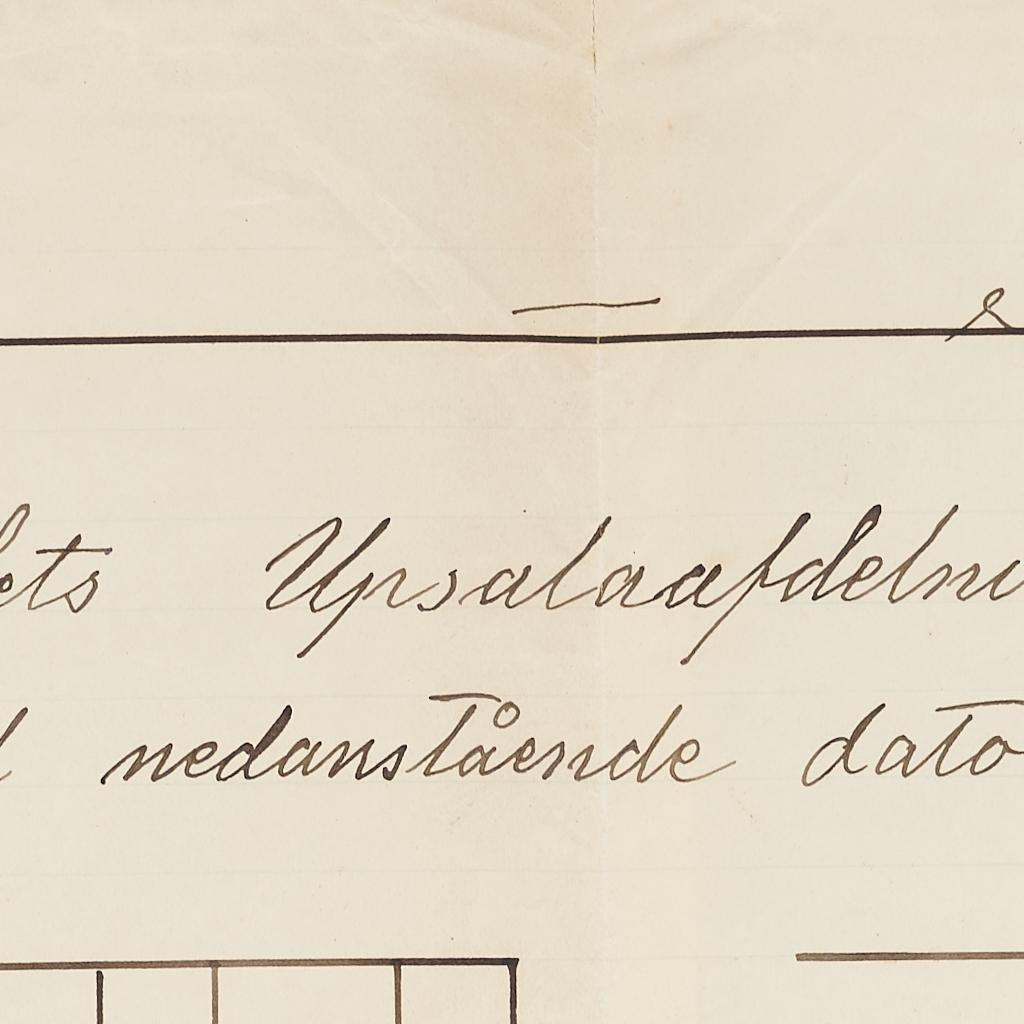 ets Upsalaafdelni
nedanstående dato